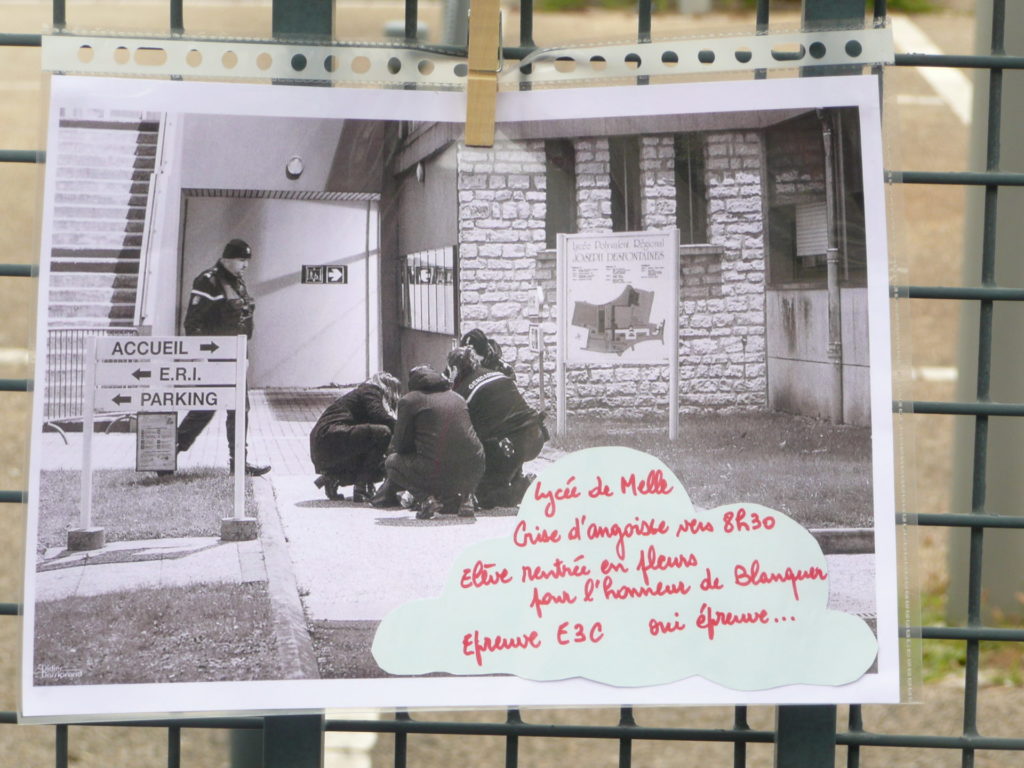 Lycée Polyvalent Régional
JOSEPH DESFONTAINES
ACCUEIL →
← E.R.I.
← PARKING
Lycée de Melle
Crise d'angoisse vers 8h30
Elève rentrée en pleurs
pour l'honneur de Blanquer
Epreuve E3C oui épreuve...